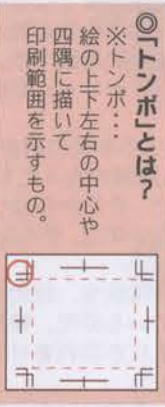 ◎「トンボ」とは?
※トンボ・・・
絵の上下左右の中心や
四隅に描いて
印刷範囲を示すもの。